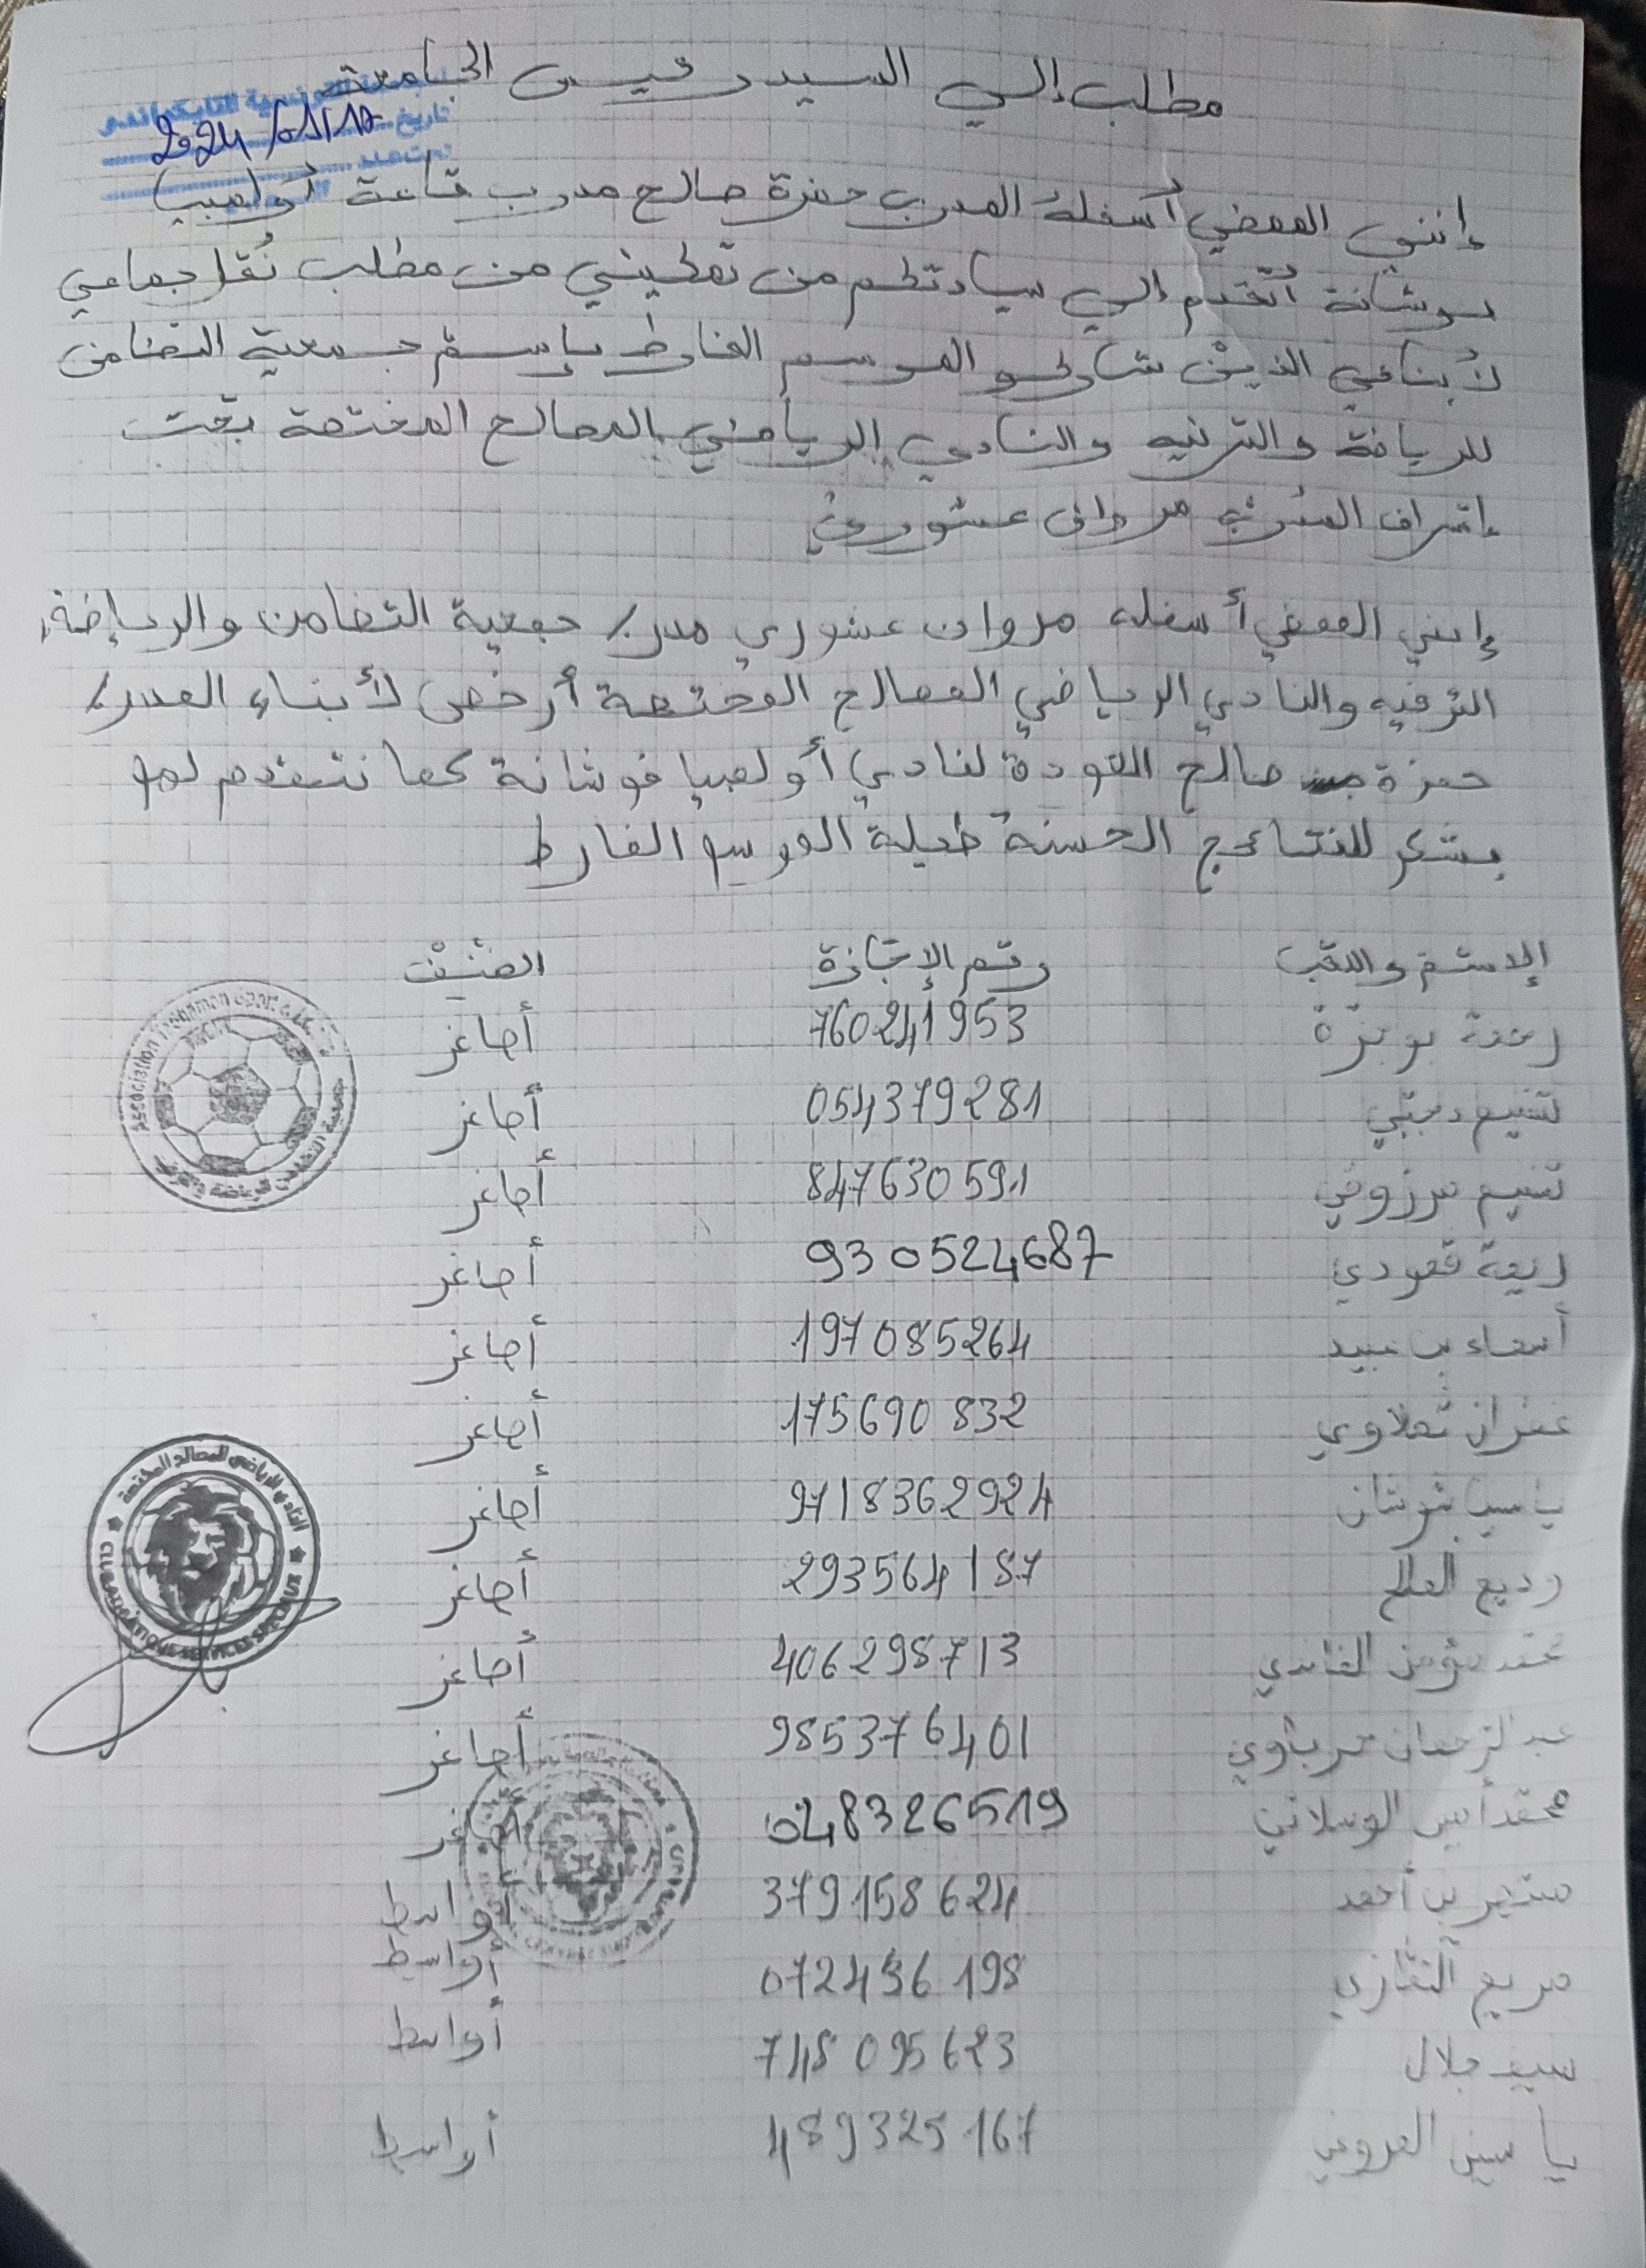 مطلب إلى السيد رئيس الجامعة
التونسية للتايكواندو
تاريخ
2024/01/17
إنني الممضي أسفله المدرب حمزة صالح مدرب قاعة أولمبيا
بوشانة أتقدم إلى سيادتكم من تمكيني من مطلب نقل جماعي
لأبنائي الذين شاركو الموسم الفارط بإسم جمعية التضامن
للرياضة والترفيه والنادي الرياضي بالمصالح المختصة تحت
إشراف المدرب مروان عشوري
إنني الممضي أسفله مروان عشوري مدرب جمعية التضامن والرياضة
الترفيه والنادي الرياضي المصالح المختصة أرخص لأبناء المدرب
حمزة صالح العودة لنادي أولمبيا فوشانة كما نتقدم لهم
بشكر للنتائج الحسنة طيلة الموسم الفارط
الإسم واللقب رقم الإجازة الصنف
رحمة بوبترة 760241953 أصاغر
تسنيم رجبي 054379281 أصاغر
تسنيم مرزوقي 847630591 أصاغر
ريمة قعودي 930524687 أصاغر
أسماء بن عبيد 197085264 أصاغر
غفران ثعلاوي 175690832 أصاغر
ياسين بوشان 9718362924 أصاغر
وديع العالم 293564187 أصاغر
محمد مؤمن القائدي 406298713 أصاغر
عبد الرحمان حرباوي 985376401 أصاغر
محمد أمين الوسلاتي 048326519 أصاغر
سمير بن أحمد 379158624 أواسط
مريم النفزي 072436198 أواسط
سيف جلال 748095623 أواسط
ياسين العروفي 489325167 أواسط
Association Tadhamon Sport
جمعية التضامن للرياضة والترفيه
النادي الرياضي للمصالح المختصة
CLUB ATHLÉTIQUE SERVICES SPÉCIAUX